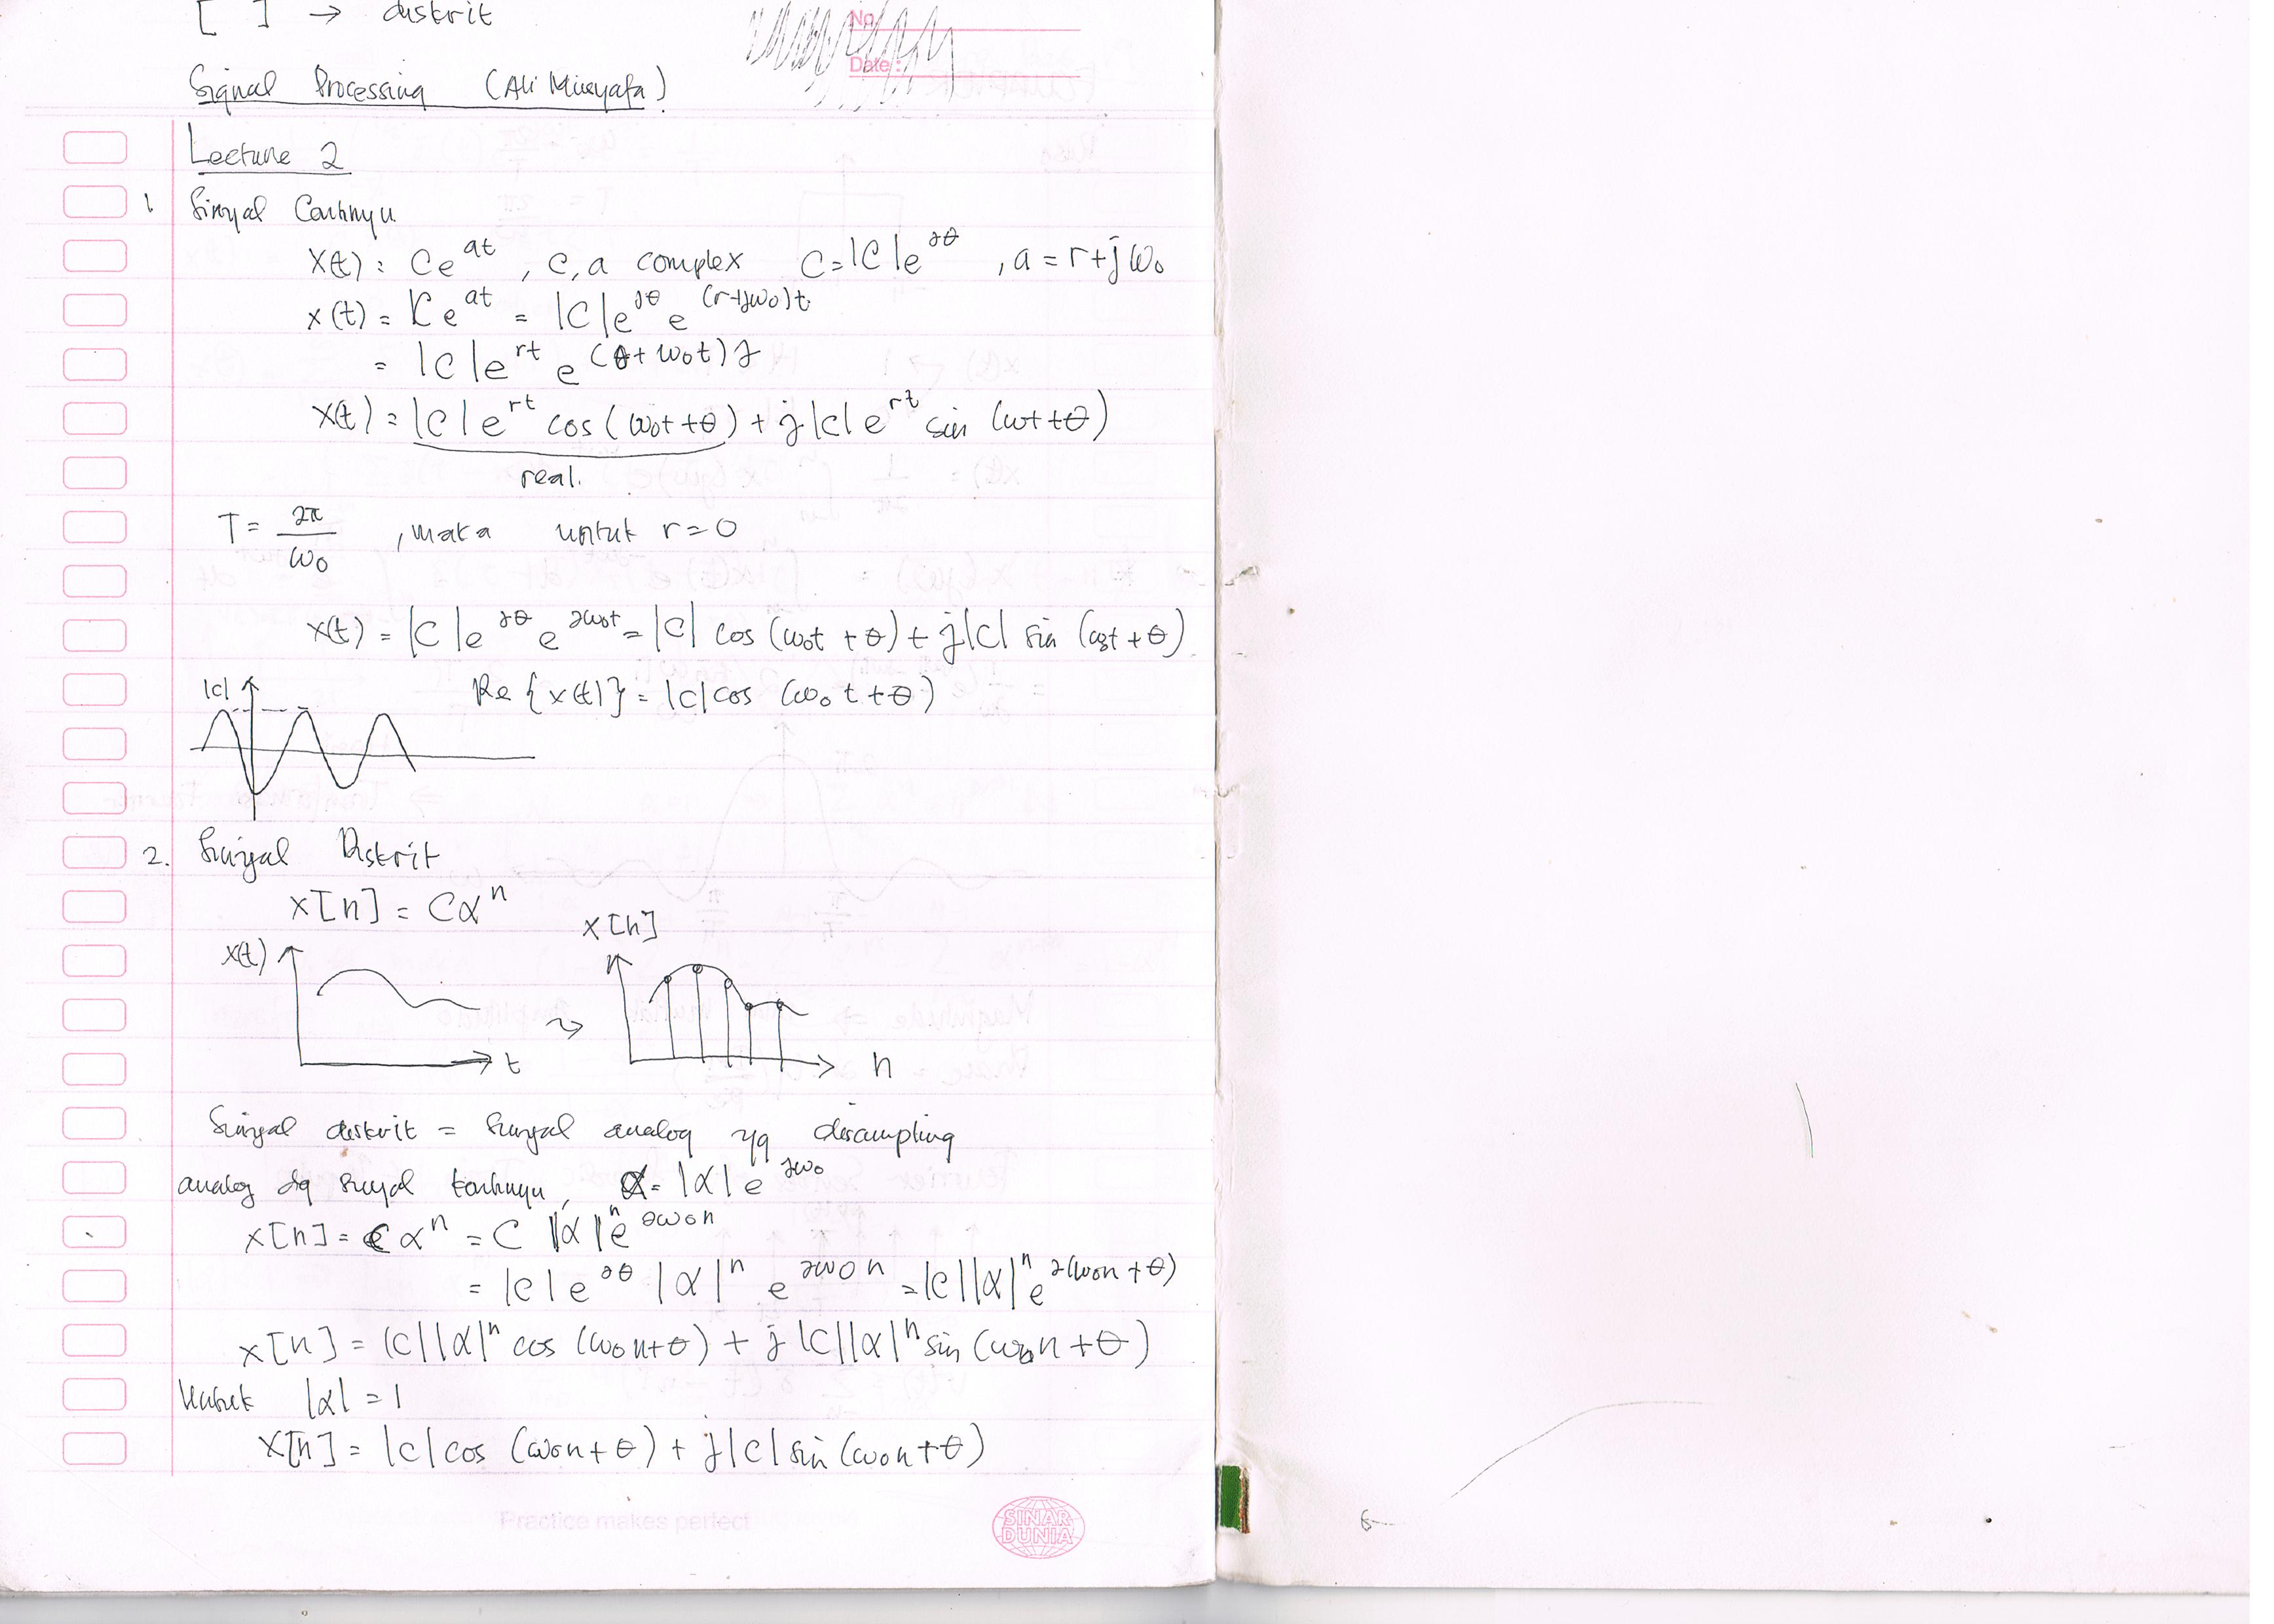 [ ] → diskrit
No.
Date :
Signal Processing (Ali Musyafa)
Lecture 2
1. Sinyal Continyu
x(t) = Ce^{at}, C, a complex C = |C|e^{jθ}, a = r+jω₀
x(t) = Ce^{at} = |C|e^{jθ} e^{(r+jω₀)t}
= |C|e^{rt} e^{(θ+ω₀t)j}
x(t) = |C|e^{rt} cos(ω₀t+θ) + j|C|e^{rt} sin (ωt+θ)
real.
T = 2π/ω₀ , maka untuk r = 0
x(t) = |C|e^{jθ} e^{jω₀t} = |C| cos (ω₀t + θ) + j|C| sin (ω₀t + θ)
|C| Re {x(t)} = |C| cos (ω₀t + θ)
2. Sinyal Diskrit
x[n] = Cα^n
x(t) x[n]
t n
Sinyal diskrit = Sinyal analog yg disampling
analog dg sinyal kontinyu, α = |α|e^{jω₀}
x[n] = Cα^n = C |α|^n e^{jω₀n}
= |C|e^{jθ} |α|^n e^{jω₀n} = |C||α|^n e^{j(ω₀n+θ)}
x[n] = |C||α|^n cos (ω₀n+θ) + j |C||α|^n sin (ω₀n+θ)
Untuk |α| = 1
x[n] = |C| cos (ω₀n+θ) + j|C| sin (ω₀n+θ)
Practice makes perfect
SINAR
DUNIA